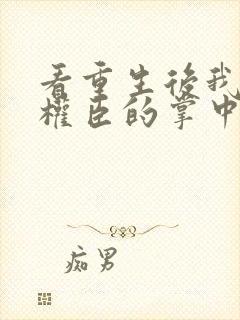 看重生後我
權臣的掌中
痴男